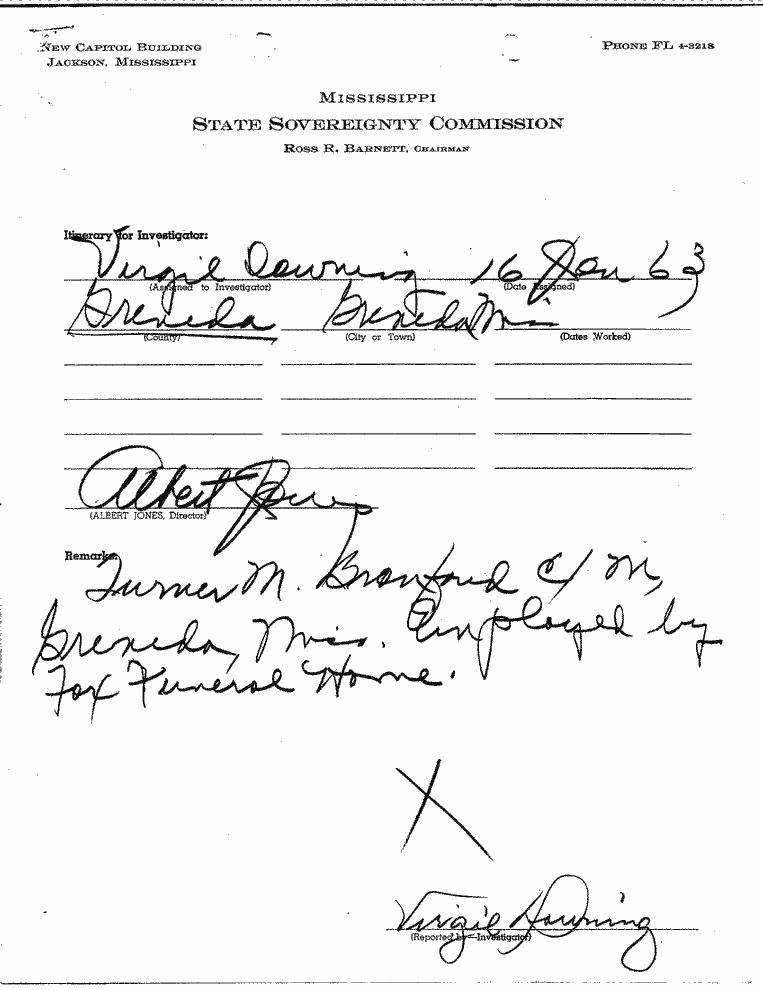 NEW CAPITOL BUILDING
JACKSON, MISSISSIPPI
PHONE FL 4-3218
MISSISSIPPI
STATE SOVEREIGNTY COMMISSION
ROSS R. BARNETT, CHAIRMAN
Itinerary for Investigator:
Virgil Downing 16 Jan 63
(Assigned to Investigator) (Date Assigned)
Grenada Grenada Miss
(County) (City or Town) (Dates Worked)
Albert Jones
(ALBERT JONES, Director)
Remarks:
Turner M. Branford C/M,
Grenada, Miss. Employed by
Fox Funeral Home.
X
Virgil Downing
(Reported by—Investigator)